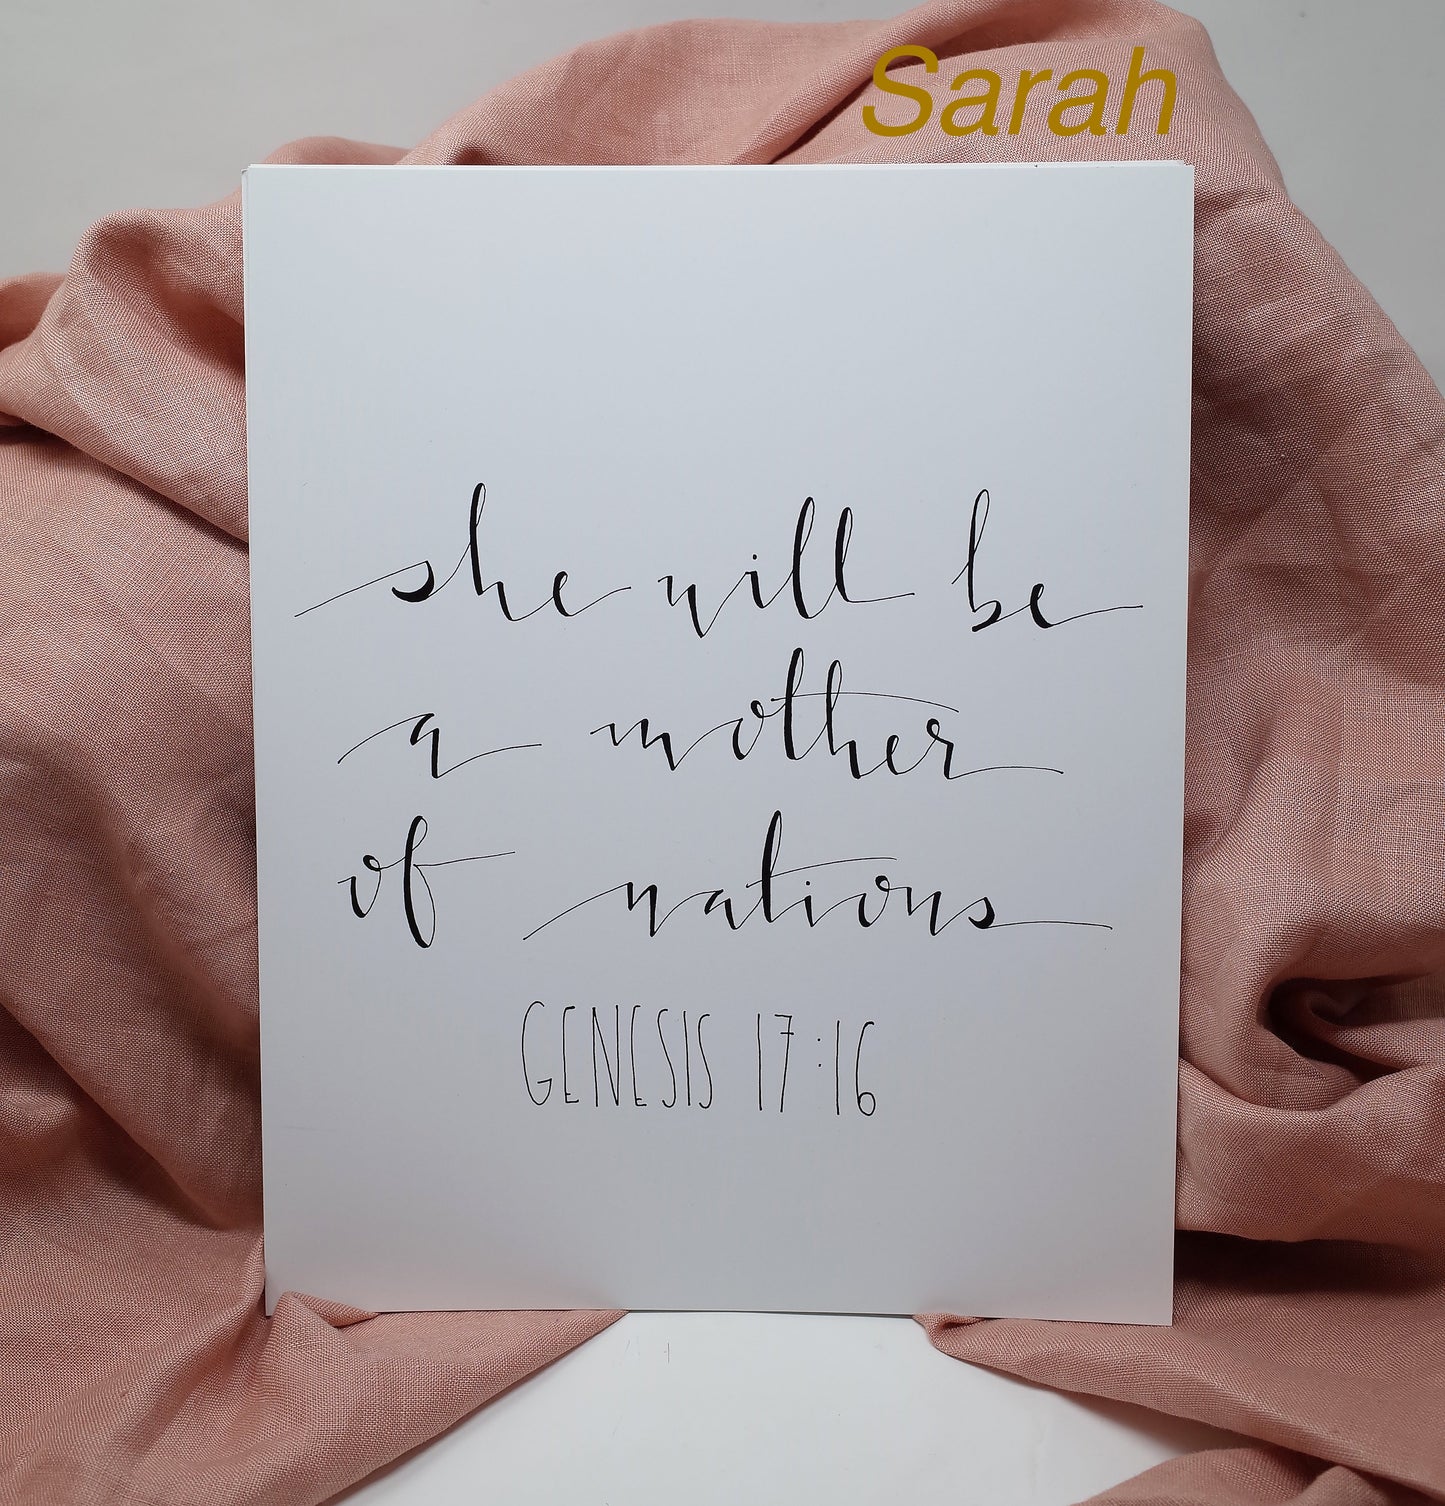 Sarah
she will be
a mother
of nations
GENESIS 17:16